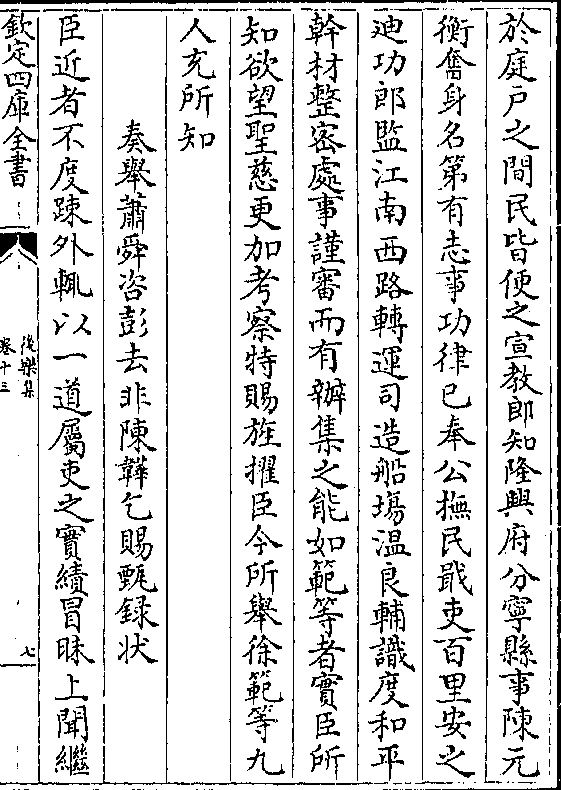 於庭戸之間民皆便之宣教郎知隆興府分寧縣事陳元
衡奮身名第有志事功律已奉公撫民戢吏百里安之
廸功郎監江南西路轉運司造船塲温良輔識度和平
幹材整密處事謹審而有辦集之能如範等者實臣所
知欲望聖慈更加考察特賜旌擢臣今所舉徐範等九
人充所知
奏舉蕭舜咨彭去非陳韡乞賜甄録状
臣近者不度踈外輒以一道屬吏之實績冒昧上聞繼
欽定四庫全書
後樂集
卷十三
七